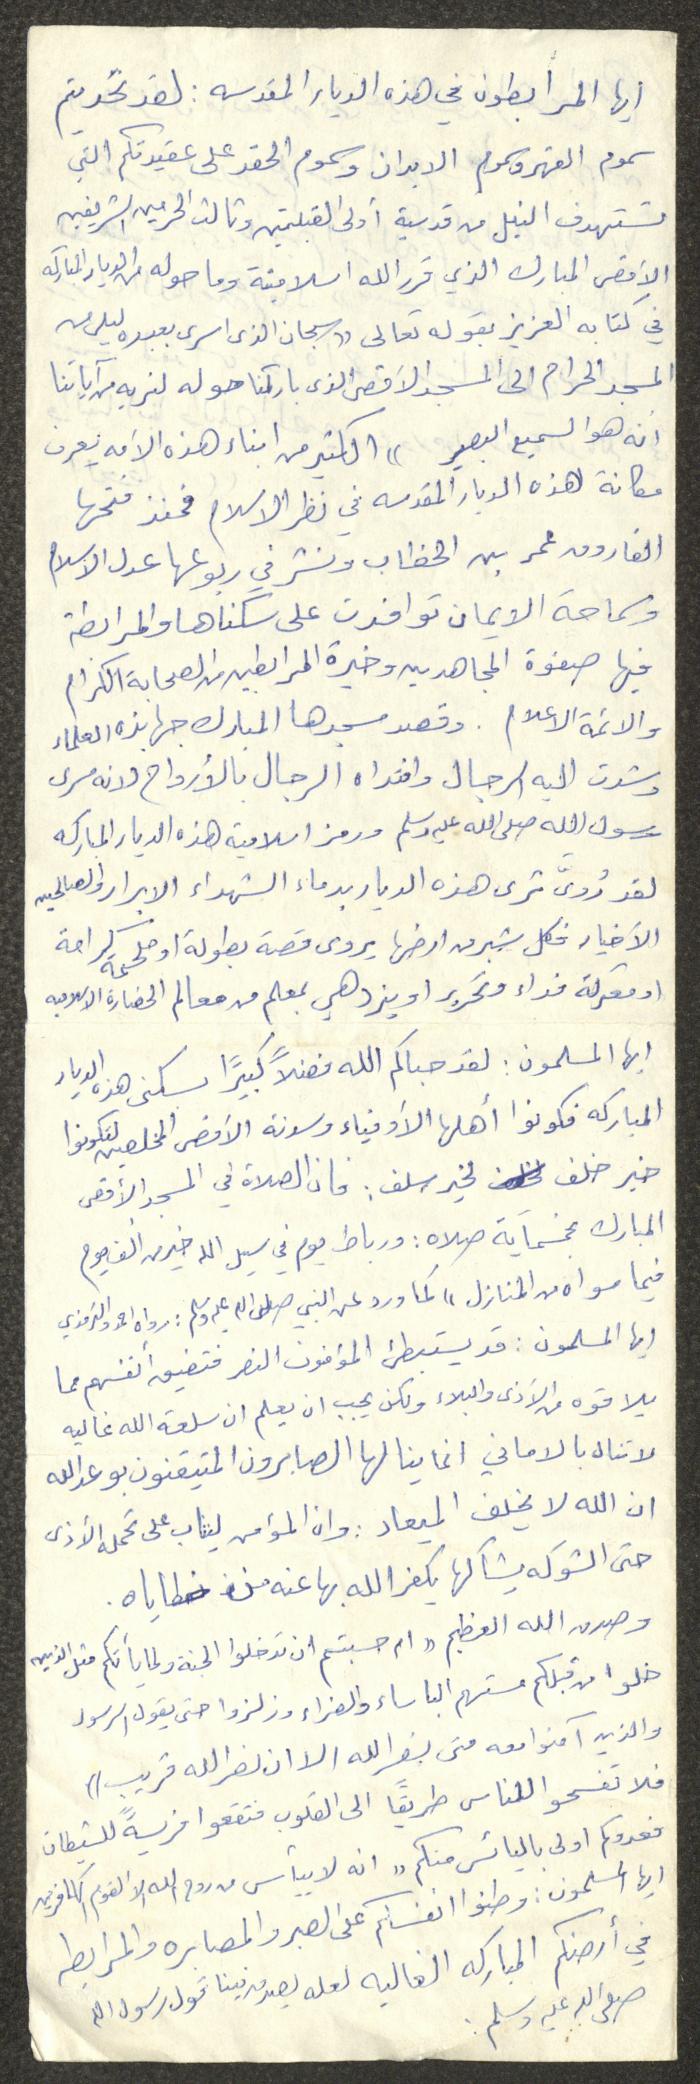 ايها المرابطون في هذه الديار المقدسه : لقد تحديتم
سموم القهر وسموم الابدان وسموم الحقد على عقيدتكم التي
تستهدف النيل من قدسية أولى القبلتين وثالث الحرمين الشريفين
الأقصى المبارك الذي قرر الله اسلاميتة وما حوله من الديار المباركه
في كتابه العزيز بقوله تعالى « سبحان الذى اسرى بعبده ليلا من
المسجد الحرام الى المسجد الأقصى الذى باركنا حوله لنريه من آياتنا
انه هو السميع البصير » الكثير من ابناء هذه الأمه يعرف
مكانة هذه الديار المقدسه في نظر الاسلام فمنذ فتحها
الفاروق عمر بن الخطاب ونشر في ربوعها عدل الاسلام
وسماحة الايمان توافدت على سكناها والمرابطة
فيها صفوة المجاهدين وخيرة المرابطين من الصحابة الكرام
والائمة الاعلام . وقصد مسجدها المبارك جهابذه العلماء
وشدت اليه الرحال وافتداه الرجال بالأرواح لانه مسرى
رسول الله صلى الله عليه وسلم ورمز اسلامية هذه الديار المباركه
لقد رُوىَّ ثرى هذه الديار بدماء الشهداء الابرار والصالحين
الأخيار فكل شبر من ارضها يروى قصة بطولة او ملحمة كرامة
او معركة فداء وتحرير او يزدهي بمعلم من معالم الحضارة الاسلاميه
ايها المسلمون : لقد حباكم الله فضلاً كبيرًا بسكنى هذه الديار
المباركه فكونوا أهلها الأوفياء وسدنة الأقصى المخلصين لتكونوا
خير خلف لخير سلف : فان الصلاة في المسجد الأقصى
المبارك بخمسماية صلاه : ورباط يوم في سبيل الله خير من ألف يوم
فيما سواه من المنازل » كما ورد عن النبي صلى الله عليه وسلم : رواه احمد والترمذي
ايها المسلمون : قد يستبطئ المؤمنون النصر فتضيق أنفسهم مما
يلاقوه من الأذى والبلاء ولكن يجب ان يعلم ان سلعة الله غاليه
لا تنال بالاماني انما ينالها الصابرون المتيقنون بوعد الله
ان الله لا يخلف الميعاد : وان المؤمن ليثاب على تحمله الأذى
حتى الشوكه يشاكها يكفر الله بها عنه من خطاياه .
وصدق الله العظيم « ام حسبتم ان تدخلوا الجنة ولما يأتكم مثل الذين
خلوا من قبلكم مستهم البأساء والضراء وزلزلوا حتى يقول الرسول
والذين آمنوا معه متى نصر الله الا ان نصر الله قريب »
فلا تفسحوا للناس طريقًا الى القلوب فتقعوا فريسةً للشيطان
فعدوكم اولى باليأس منكم « انه لا ييأس من روح الله الا القوم الكافرون
ايها المسلمون : وطنوا انفسكم على الصبر والمصابره والمرابطه
في أرضكم المباركه الغاليه لعله يصدق فينا قول رسول الله
صلى الله عليه وسلم :